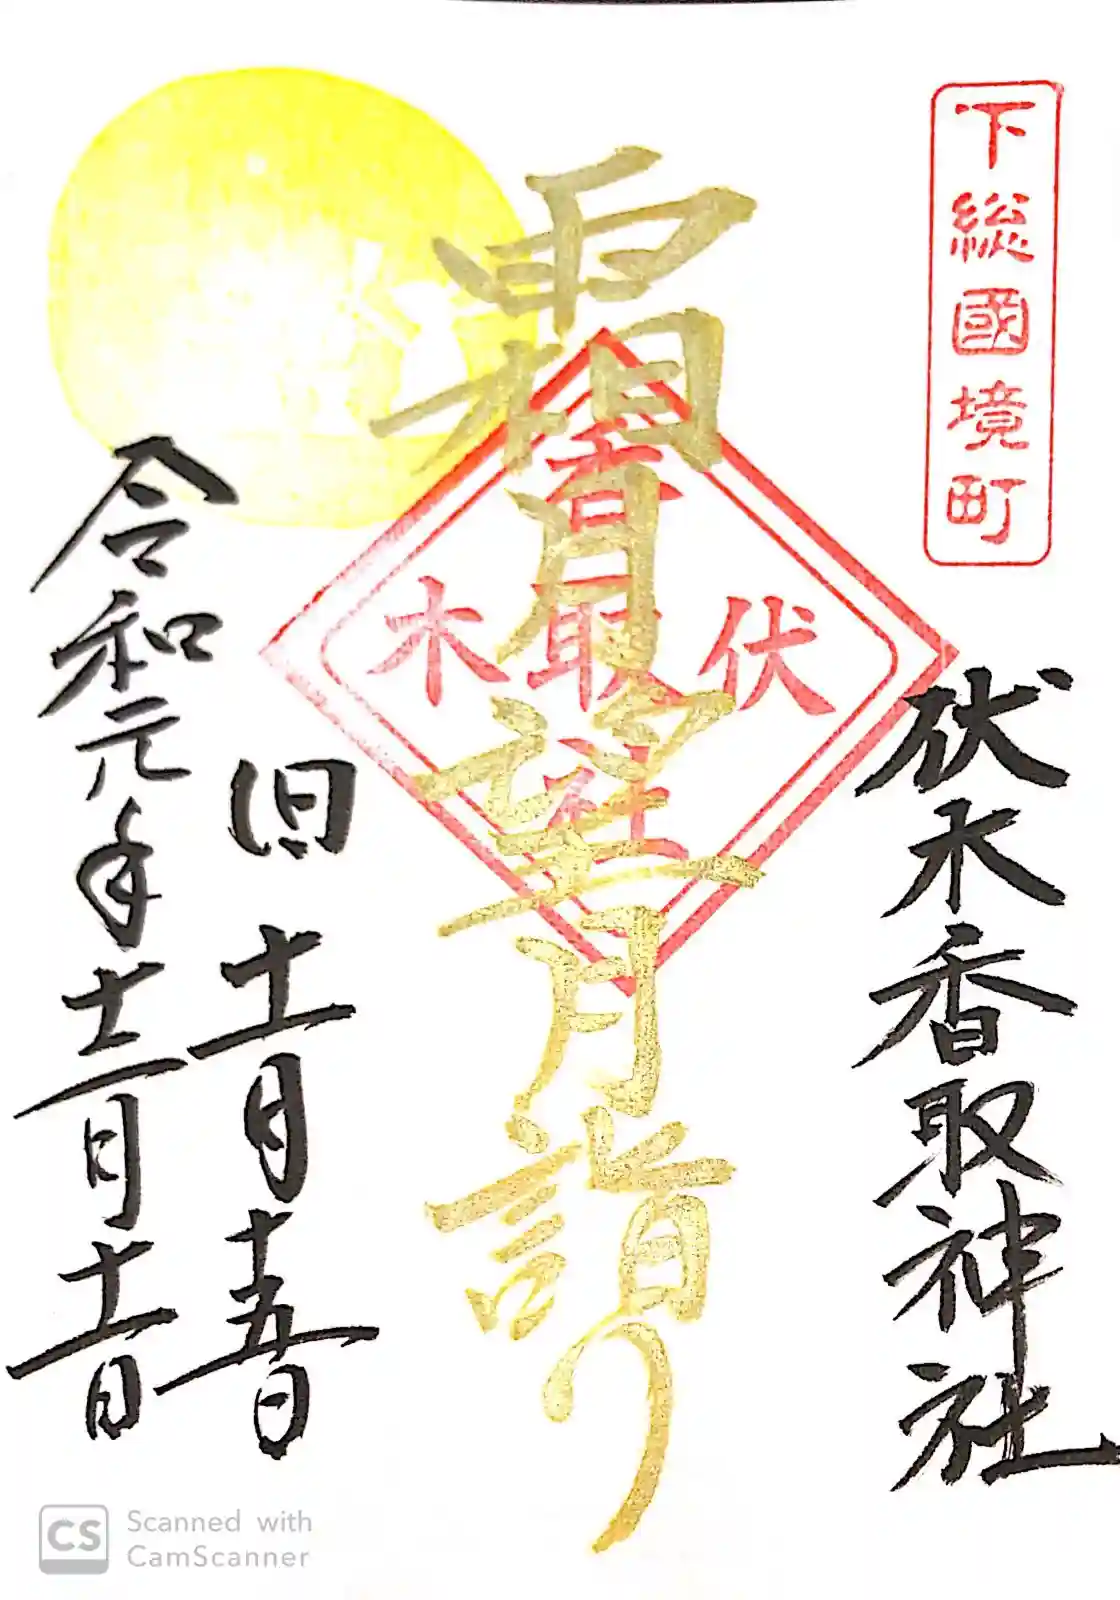 下総國境町
伏木香取神社
霜月望月詣り
香取社
伏木
旧十一月十五日
令和元年十二月十一日
CS Scanned with
CamScanner